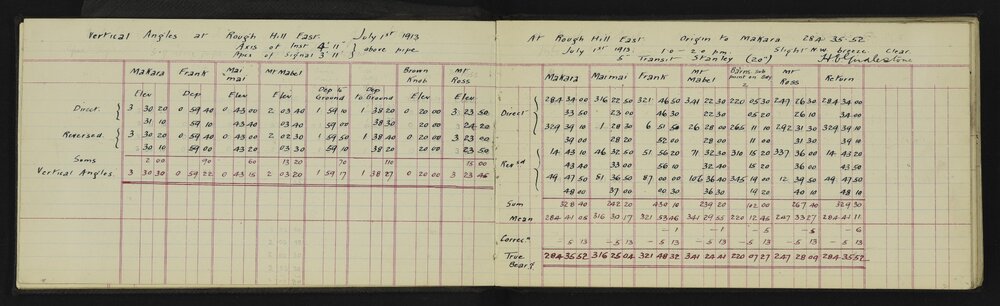 Vertical Angles at Rough Hill East. July 1st 1913
Axis of Inst 4' 11"
Apex of Signal 3' 11" } above pipe
Makara Frank Mai mai Mt Mabel Brown Knob Mt Ross
Elev Dep Elev Elev Dep to Ground Dep to Ground Elev Elev
Direct. 3 30 20 0 59 40 0 43 00 2 03 40 1 59 10 1 38 20 0 20 00 3 23 50
31 10 59 10 43 40 03 40 59 00 38 30 20 00 24 20
Reversed. 3 30 20 0 59 00 0 43 20 2 02 30 1 59 50 1 38 40 0 20 00 3 23 00
30 10 59 00 43 20 03 30 59 10 38 20 20 00 23 50
Sums 2 00 90 60 13 20 70 110 15 00
Vertical Angles. 3 30 30 0 59 22 0 43 15 2 03 20 1 59 17 1 38 27 0 20 00 3 23 45
At Rough Hill East Origin to Makara 284 35 52
July 1st 1913. 10-20 pm Slight N.W. breeze Clear.
5" Transit Stanley (20")
Makara Maimai Frank Mt Mabel Mt Ross Return
Direct 284 34 00 316 22 50 321 46 50 341 22 30 220 05 30 247 26 30 284 34 00
33 50 23 00 46 30 22 30 05 20 26 10 34 00
329 39 10 1 28 30 6 51 50 26 28 00 265 11 10 292 31 30 329 39 10
39 00 28 20 52 00 28 00 11 00 31 30 39 10
Revsd 14 43 10 46 32 50 51 56 20 71 32 30 310 15 20 337 36 00 14 43 20
43 40 33 00 56 10 32 40 15 20 36 00 43 50
49 47 50 81 36 50 87 00 00 106 36 40 345 19 00 12 39 50 49 47 50
48 00 37 00 00 30 36 30 19 20 40 10 48 10
Sum 328 40 242 20 430 10 239 20 102 00 267 40 329 30
Mean 284 41 05 316 30 17 321 53 46 341 29 55 220 12 45 247 33 27 284 41 11
- 1 - 1 - 5 - 5 - 6
Correcn - 5 13 - 5 13 - 5 13 - 5 13 - 5 13 - 5 13 - 5 13
True Bearg 284 35 52 316 25 04 321 48 32 341 24 41 220 07 27 247 28 09 284 35 52